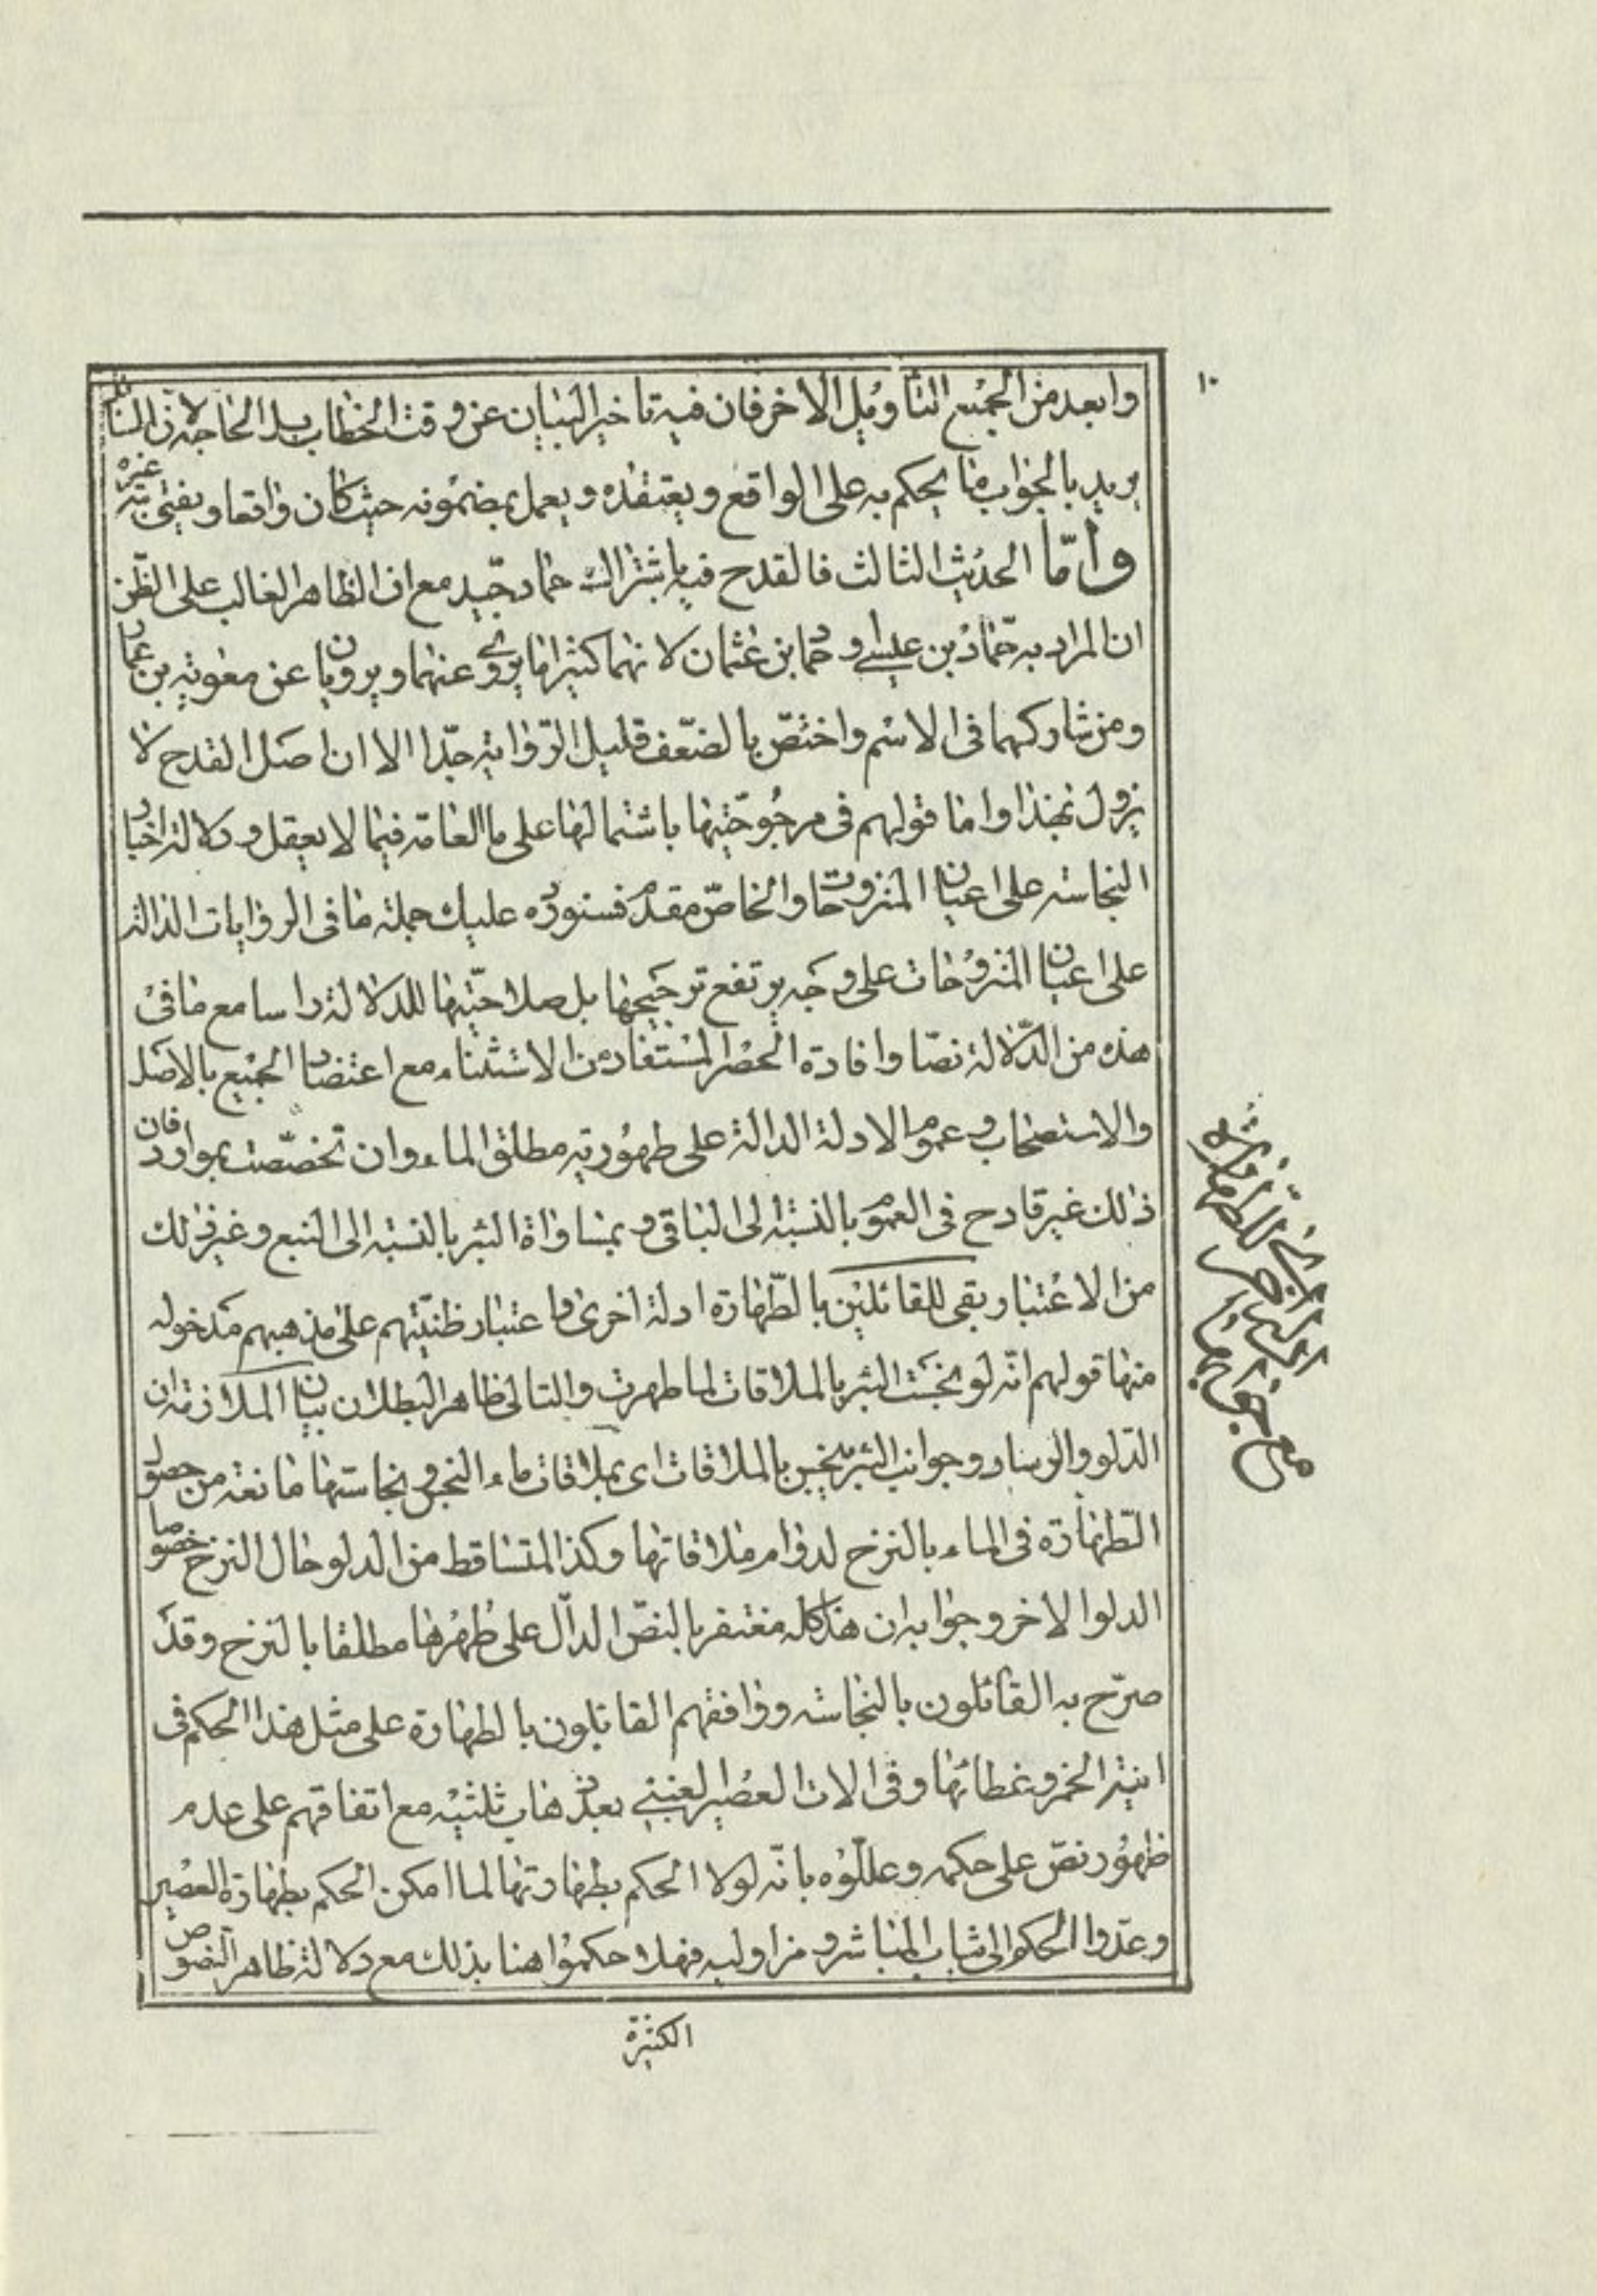 ١٠
وابعد من الجميع التأويل الاخر فان فيه تاخير البيان عن وقت الخطاب بل الحاجة لان السائل
يريد بالجواب ما يحكم به على الواقع ويعتقده ويعمل بمضمونه حيث كان واقعا ويفتى به غيره
وامّا الحديث الثالث فالقدح فيه باشتراك حماد جيّد مع ان الظاهر الغالب على الظّن
ان المراد به حمّاد بن عيسى وحماد بن عثمان لانهما كثيرا ما يروى عنهما ويرويان عن معوية بن عمار
ومن شاركهما فى الاسم واختصّ بالضّعف قليل الرّواية جدّا الا ان اصل القدح لا
يزول بهذا واما قولهم فى مرجوحيّتها باشتمالها على ما العامة فيما لا يعقل ودلالة اخبار
النجاسة على اعيان المنزوحات والخاصّ مقدم فسنورده عليك جملة ما فى الروايات الدالة
على اعيان المنزوحات على وجه يرتفع ترجيحها بل صلاحيّتها للدلالة راسا مع ما فى
هذه من الدّلالة نصّا وافادة الحصر المستفاد من الاستثناء مع اعتضاد الجميع بالاصل
والاستصحاب وعموم الادلة الدالة على طهورية مطلق الماء وان تخصّصت بموارد فان
ذلك غير قادح فى العموم بالنسبة الى الباقى وبمساواة البئر بالنسبة الى النبع وغير ذلك
من الاعتبار بقى للقائلين بالطّهارة ادلة اخرى باعتبار ظنيّتهم على مذهبهم مدخولة
منها قولهم انّه لو نجست البئر بالملاقات لما طهرت والتالى ظاهر البطلان بيان الملازمة ان
الدّلو والرشاء وجوانب البئر ينجس بالملاقات اى بملاقات ماء النجس ونجاستها مانعة من حصول
الطّهارة فى الماء بالنزح لدوام ملاقاتها وكذا المتساقط من الدلو حال النزح خصوصا
الدلو الاخر وجوابه ان هذا كله مغتفر بالنصّ الدالّ على طُهرُها مطلقا بالنزح وقد
صرّح به القائلون بالنجاسة ووافقهم القائلون بالطهارة على مثل هذا الحكم فى
انية الخمر وغطائها وفى الات العصير العنبى بعد ذهاب ثلثيه مع اتفاقهم على عدم
ظهور نصّ على حكمه وعللّوه بانّه لولا الحكم بطهارتها لما امكن الحكم بطهارة العصير
وعدّوا الحكم الى ثياب المباشر ومزاوليه فهلا حكموا هنا بذلك مع دلالة ظاهر النصوص
الكثيرة
مع جوابها